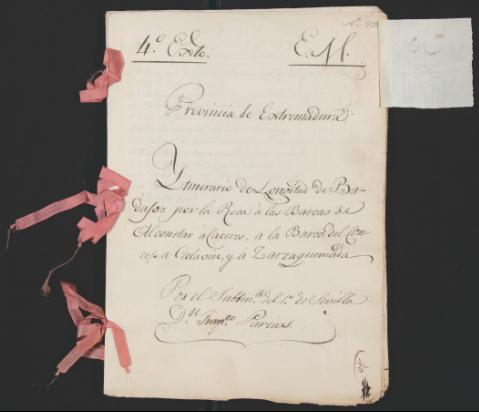 4.º Exto.
E. M.
Provincia de Extremadura
Ytinerario de Longitud de Ba-
dajoz por la Roca à las Barcas de
Alconetar à Caceres, a la Barca del Con-
cejo, a Ciclavin, y à Zarzaquemada
Por el Subten.te del 1.º de Sevilla
D.n Fran.co Pareias.